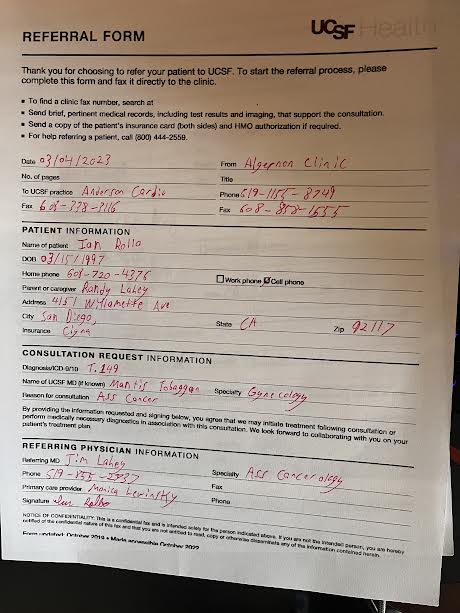 REFERRAL FORM
UCSF Health
Thank you for choosing to refer your patient to UCSF. To start the referral process, please
complete this form and fax it directly to the clinic.
▪ To find a clinic fax number, search at
▪ Send brief, pertinent medical records, including test results and imaging, that support the consultation.
▪ Send a copy of the patient's insurance card (both sides) and HMO authorization if required.
▪ For help referring a patient, call (800) 444-2559.
Date 03/04/2023 From Algernon Clinic
No. of pages Title
To UCSF practice Anderson Cardio Phone 619-1155-8749
Fax 608-338-3116 Fax 608-858-1555
PATIENT INFORMATION
Name of patient Ian Rollo
DOB 03/15/1997
Home phone 608-720-4376 Work phone Cell phone
Parent or caregiver Randy Lahey
Address 4151 Willamette Ave
City San Diego, State CA Zip 92117
Insurance Cigna
CONSULTATION REQUEST INFORMATION
Diagnosis/ICD-9/10 T.149
Name of UCSF MD (if known) Mantis Tobaggan Specialty Gynecology
Reason for consultation Ass Cancer
By providing the information requested and signing below, you agree we may initiate treatment following consultation or
perform medically necessary diagnostics in association with this consultation. We look forward to collaborating with you on your
patient's treatment plan.
REFERRING PHYSICIAN INFORMATION
Referring MD Jim Lahey Specialty Ass Cancerology
Phone Fax
Primary care provider Monica Lewinsky Phone
Signature
NOTICE OF CONFIDENTIALITY: This is a confidential fax and is intended solely for the person indicated above. If you are not the intended person, you are hereby
notified of the confidential nature of this fax and that you are not entitled to read, copy or otherwise disseminate any of the information contained herein.
Form updated: October 2019 • Made accessible October 2022